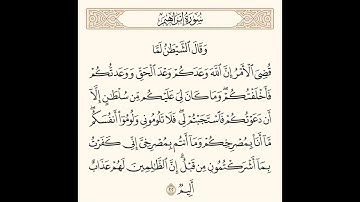 سُورَةُ إِبْرَاهِيمَ
وَقَالَ ٱلشَّيْطَٰنُ لَمَّا
قُضِىَ ٱلْأَمْرُ إِنَّ ٱللَّهَ وَعَدَكُمْ وَعْدَ ٱلْحَقِّ وَوَعَدتُّكُمْ
فَأَخْلَفْتُكُمْ ۖ وَمَا كَانَ لِىَ عَلَيْكُم مِّن سُلْطَٰنٍ إِلَّآ
أَن دَعَوْتُكُمْ فَٱسْتَجَبْتُمْ لِى ۖ فَلَا تَلُومُونِى وَلُومُوٓا۟ أَنفُسَكُم ۖ
مَّآ أَنَا۠ بِمُصْرِخِكُمْ وَمَآ أَنتُم بِمُصْرِخِىَّ ۖ إِنِّى كَفَرْتُ
بِمَآ أَشْرَكْتُمُونِ مِن قَبْلُ ۗ إِنَّ ٱلظَّٰلِمِينَ لَهُمْ عَذَابٌ
أَلِيمٌ ٢٢